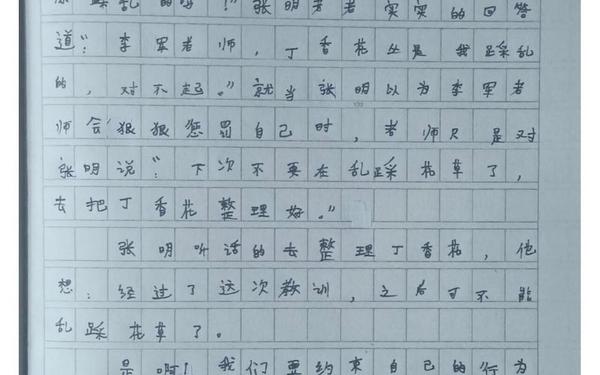 踩乱的吗?"张明老老实实的回答
道":李军老师,丁香花丛是我踩乱
的,对不起。"就当张明以为李军老
师会狠狠惩罚自己时,老师只是对
张明说":下次不要在乱踩花草了,
去把丁香花整理好。"
张明听话的去整理丁香花,他
想:经过了这次教训,之后可不能
乱踩花草了。
是啊!我们要约束自己的行为